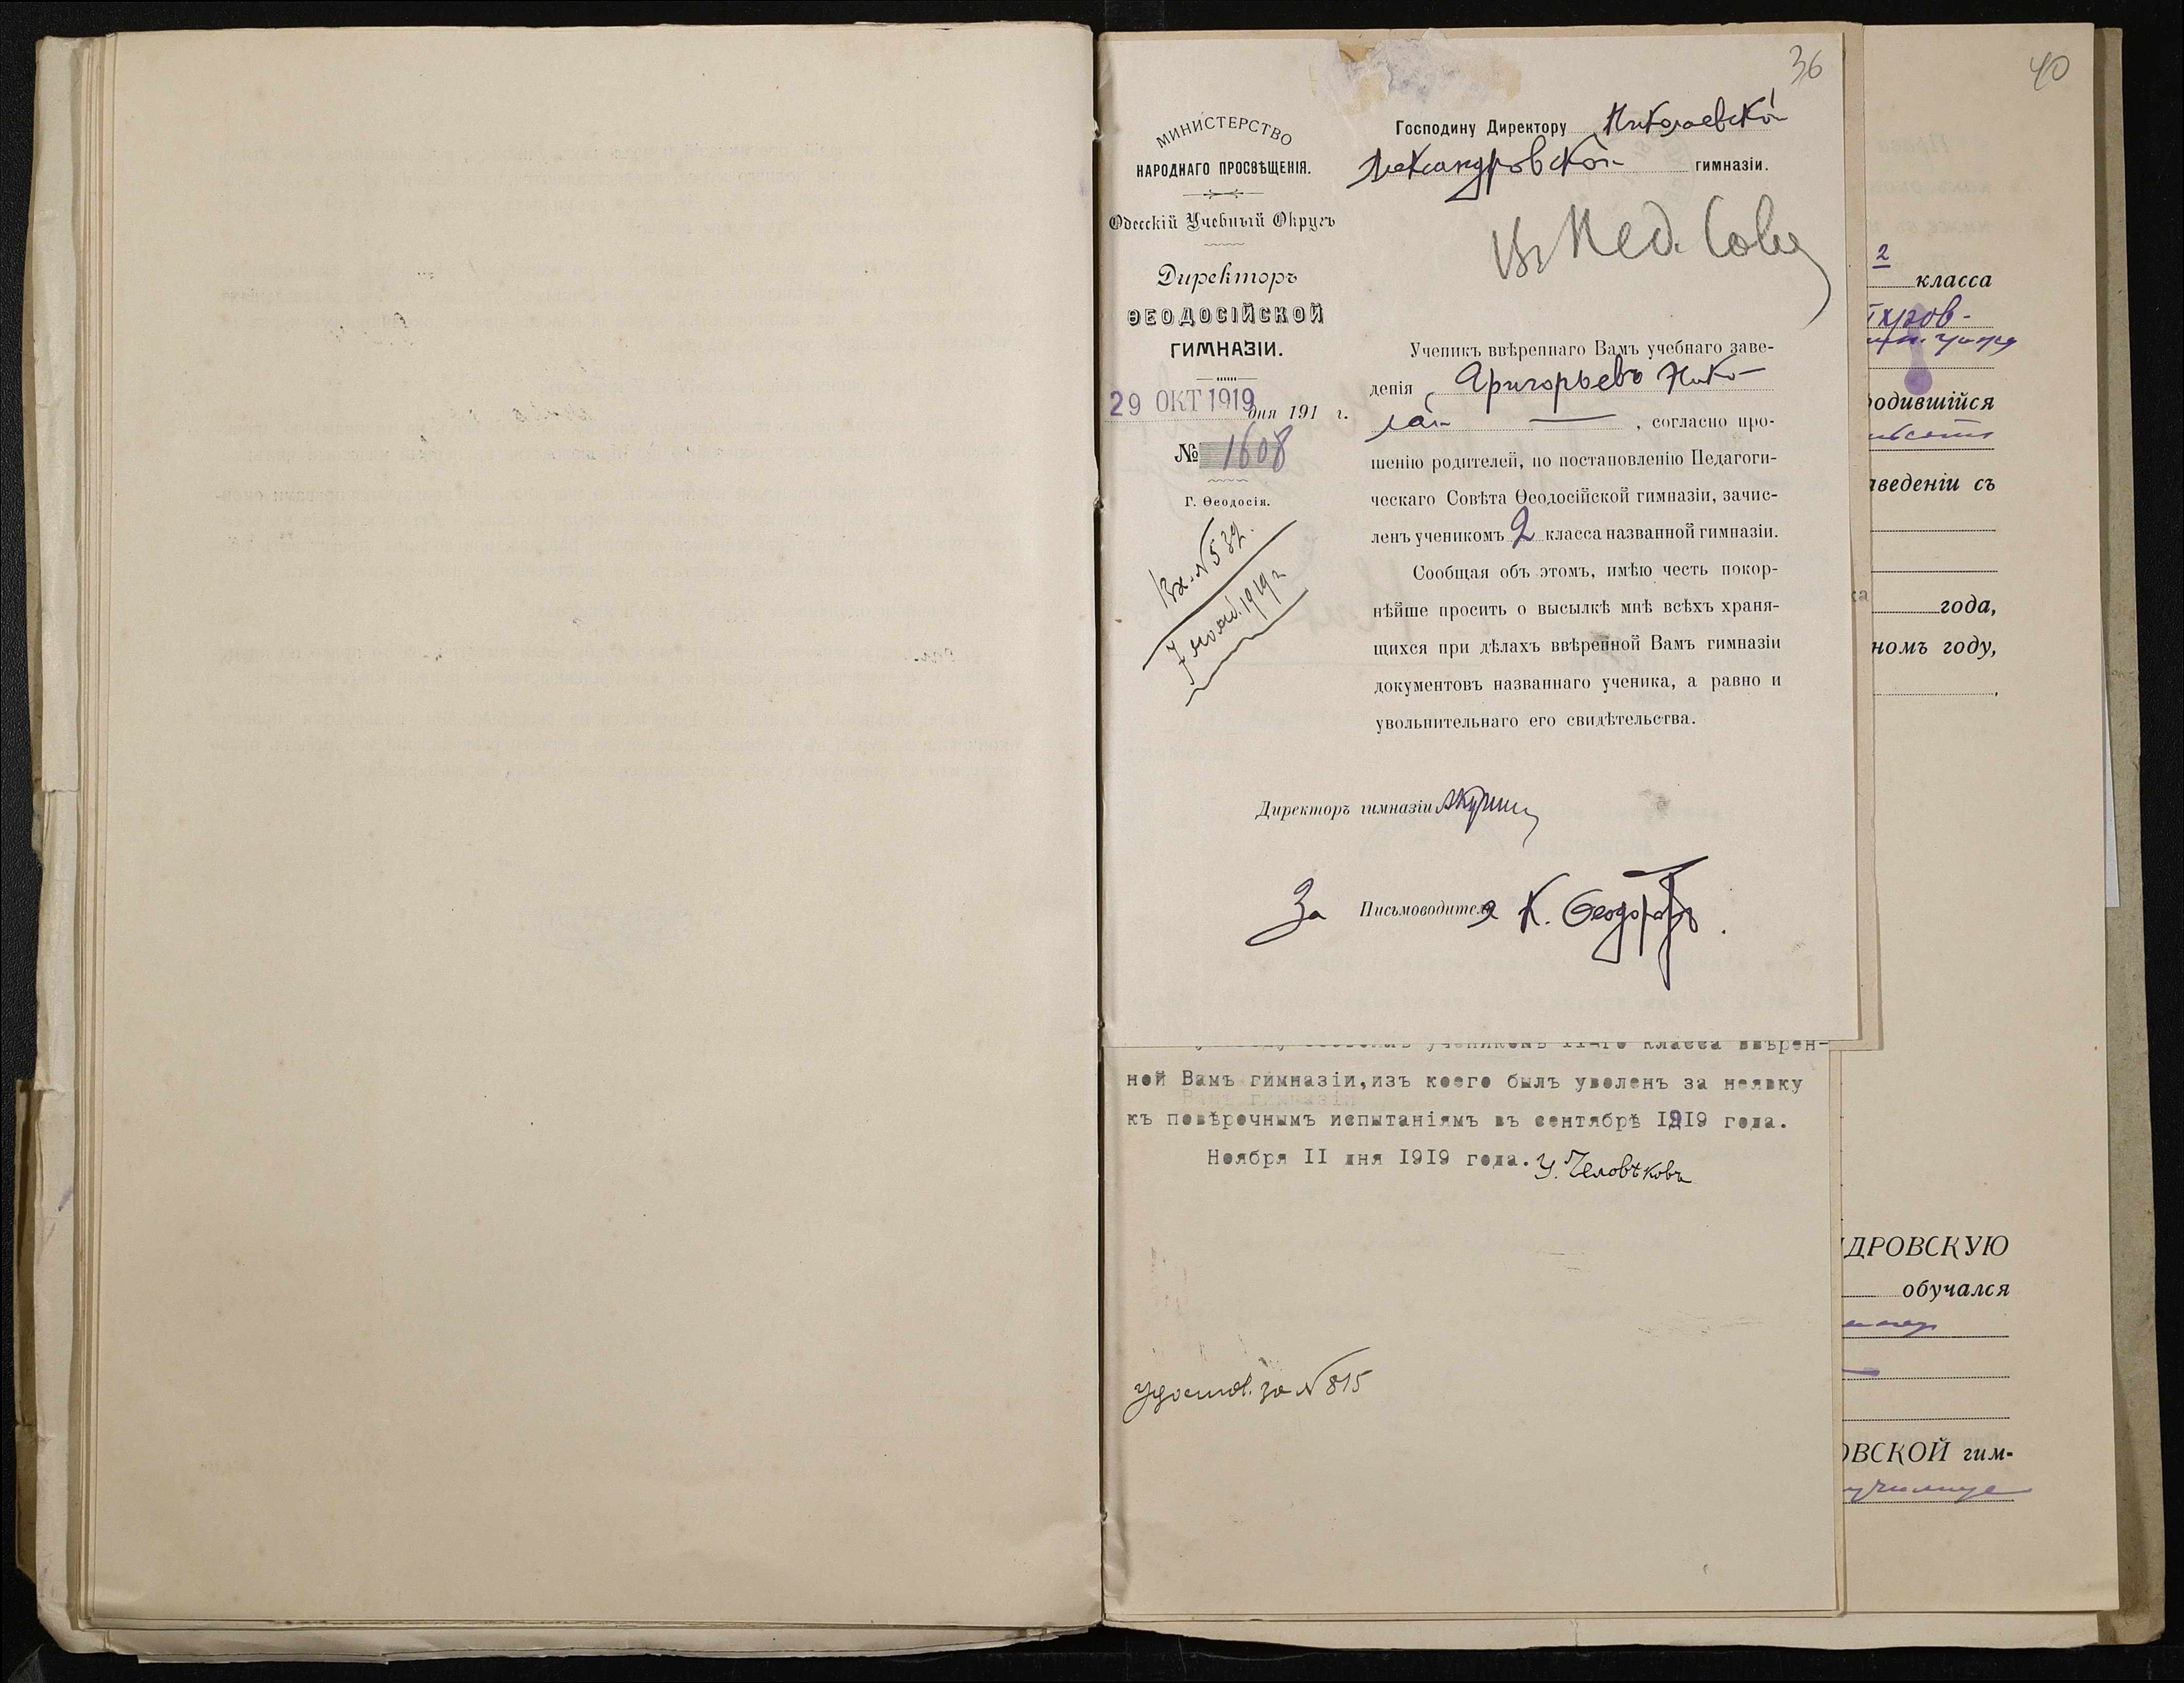 36
40
МИНИСТЕРСТВО
НАРОДНАГО ПРОСВѢЩЕНІЯ.
Одесскій Учебный Округъ
Директоръ
ѲЕОДОСІЙСКОЙ
ГИМНАЗІИ.
29 ОКТ 1919 дня 191 г.
№ 1608
Г. Ѳеодосія.
Вх. № 532.
7 нояб. 1919 г.
Господину Директору Николаевской
Александровской гимназіи.
Въ Пед. Совѣ
Ученикъ ввѣреннаго Вамъ учебнаго заве-
денія Григорьевъ Нико-
лай — , согласно про-
шенію родителей, по постановленію Педагоги-
ческаго Совѣта Ѳеодосійской гимназіи, зачис-
ленъ ученикомъ 2 класса названной гимназіи.
Сообщая объ этомъ, имѣю честь покор-
нѣйше просить о высылкѣ мнѣ всѣхъ храня-
щихся при дѣлахъ ввѣренной Вамъ гимназіи
документовъ названнаго ученика, а равно и
увольнительнаго его свидѣтельства.
Директоръ гимназіи
За Письмоводителя К.
ученикомъ II-го класса ввѣрен-
ной Вамъ гимназіи, изъ коего былъ уволенъ за неявку
къ повѣрочнымъ испытаніямъ въ сентябрѣ 1919 года.
Ноября 11 дня 1919 года. У. Человѣковъ
Удостов. за № 815
2
класса
одившійся
аведеніи съ
года,
номъ году,
ДРОВСКУЮ
обучался
ОВСКОЙ гим-
училище